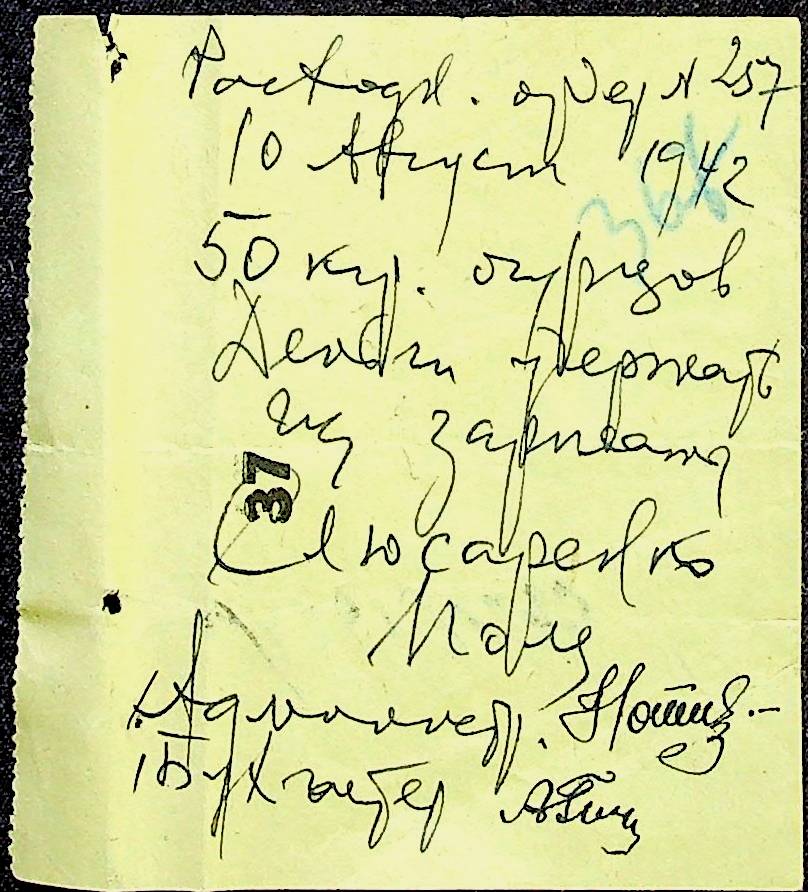 Расходн. ордер № 257
10 Август 1942
50 кгр. огурцов
Деньги удержать
из зарплаты
37
Слюсаренко
Полц
Администр.
Бухгалтер